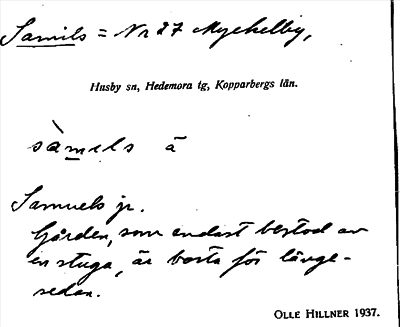 Samils = Nr 27 Myckelby,
Husby sn, Hedemora tg, Kopparbergs län.
sàmels ä
Samuels jr.
Gården, som endast bestod av
en stuga, är borta för länge-
sedan.
OLLE HILLNER 1937.